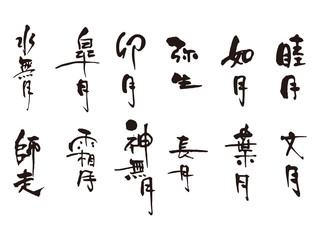 睦月
如月
弥生
卯月
皐月
水無月
文月
葉月
長月
神無月
霜月
師走